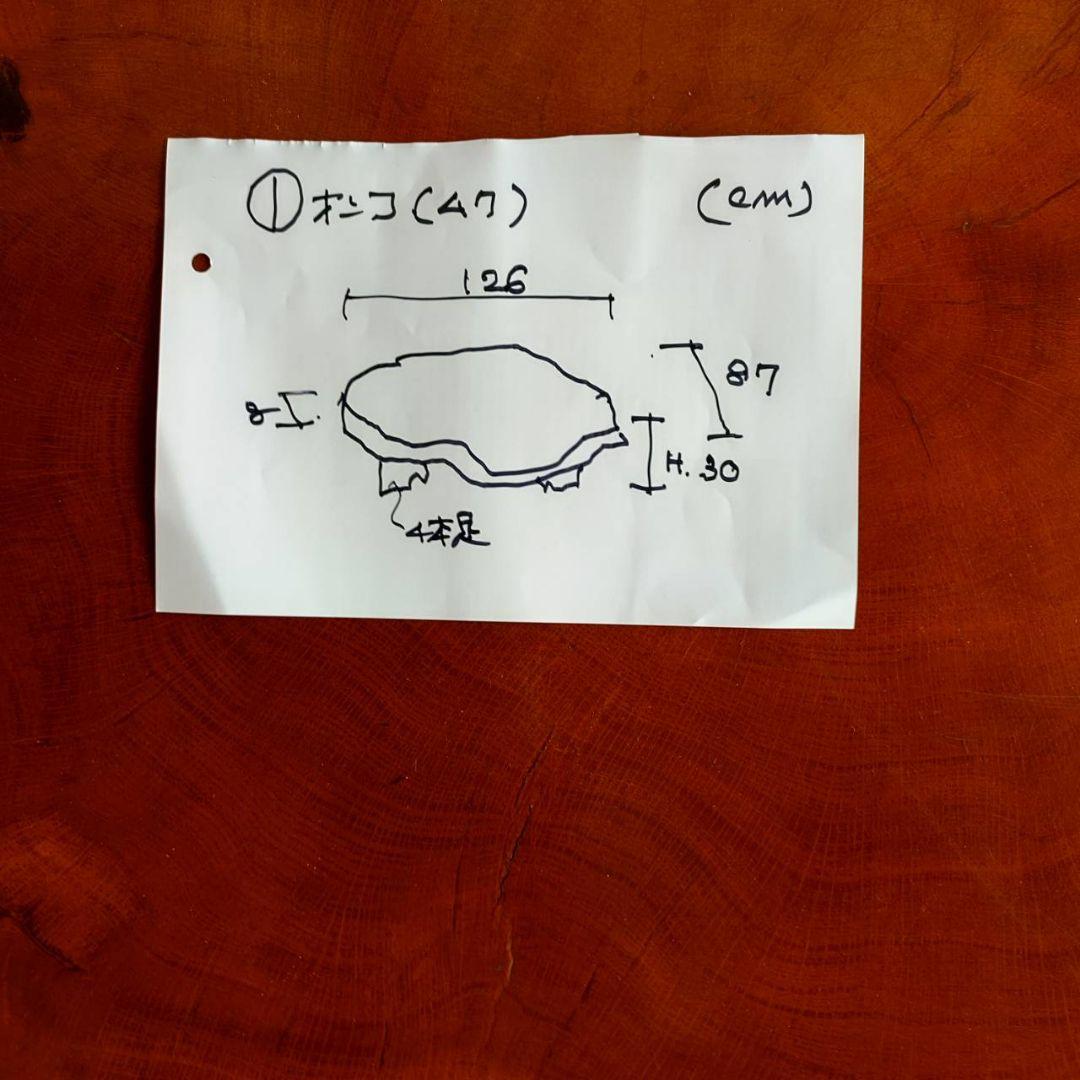 ①オンコ(47) (cm)
126
87
8
H.30
4本足